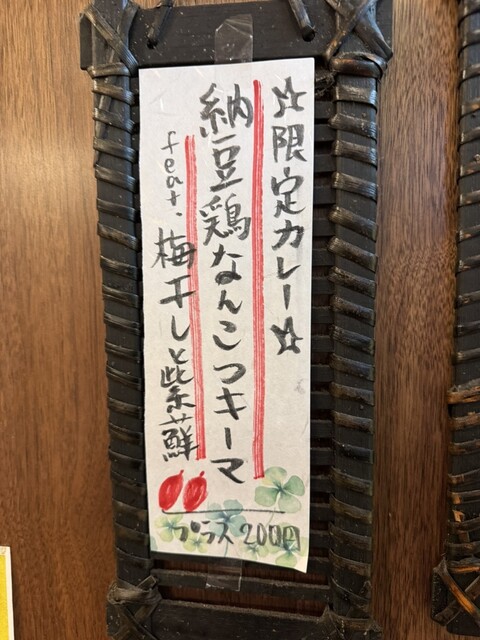 ☆限定カレー☆
納豆鶏なんこつキーマ
feat. 梅干しと紫蘇
プラス200円